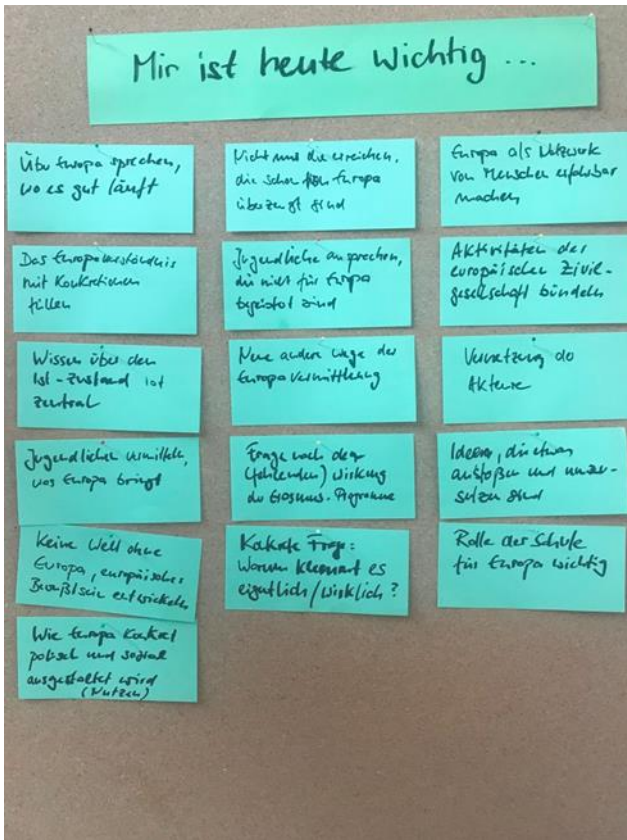 Mir ist heute wichtig ...
Über Europa sprechen,
wo es gut läuft
Das Europaverständnis
mit Konkretionen
füllen
Wissen über den
Ist-Zustand ist
zentral
Jugendlichen vermitteln,
was Europa bringt
Keine Welt ohne
Europa, europäisches
Bewußtsein entwickeln
Wie Europa konkret
politisch und sozial
ausgestaltet wird
(Nutzen)
Nicht nur die erreichen,
die schon von Europa
überzeugt sind
Jugendliche ansprechen,
die nicht für Europa
begeistert sind
Neue andere Wege der
Europavermittlung
Frage nach der
(fehlenden) Wirkung
der Erasmus-Programme
Konkrete Frage:
Warum klemmt es
eigentlich/wirklich?
Europa als Netzwerk
von Menschen erfahrbar
machen
Aktivitäten der
europäischen Zivil-
gesellschaft bündeln
Vernetzung der
Akteure
Ideen, die etwas
anstoßen und umzu-
setzen sind
Rolle der Schule
für Europa wichtig